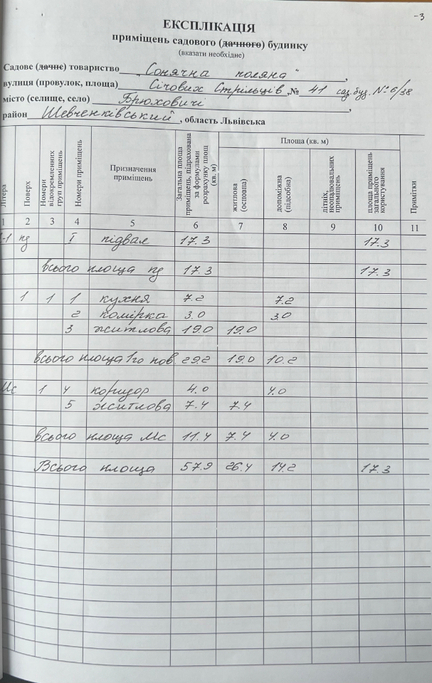 -3
ЕКСПЛІКАЦІЯ
приміщень садового (дачного) будинку
(вказати необхідне)
Садове (дачне) товариство "Сонячна поляна",
вулиця (провулок, площа) Січових Стрільців № 41 сад. буд. № 6/38
місто (селище, село) Брюховичі,
район Шевченківський, область Львівська
Літера Поверх Номери відокремлених груп приміщень Номери приміщень Призначення приміщень Загальна площа приміщень, підрахована за формулами розрахунку площ (кв. м) Площа (кв. м)
житлова (основна) допоміжна (підсобна) літніх, неопалювальних приміщень площа приміщень загального користування Примітки
1 2 3 4 5 6 7 8 9 10 11
-1 пд І підвал 17.3 17.3
всього площа пд 17.3 17.3
1 1 1 кухня 7.2 7.2
2 комірка 3.0 3.0
3 житлова 19.0 19.0
всього площа 1го пов. 29.2 19.0 10.2
Мс 1 4 коридор 4.0 4.0
5 житлова 7.4 7.4
всього площа Мс 11.4 7.4 4.0
Всього площа 57.9 26.4 14.2 17.3